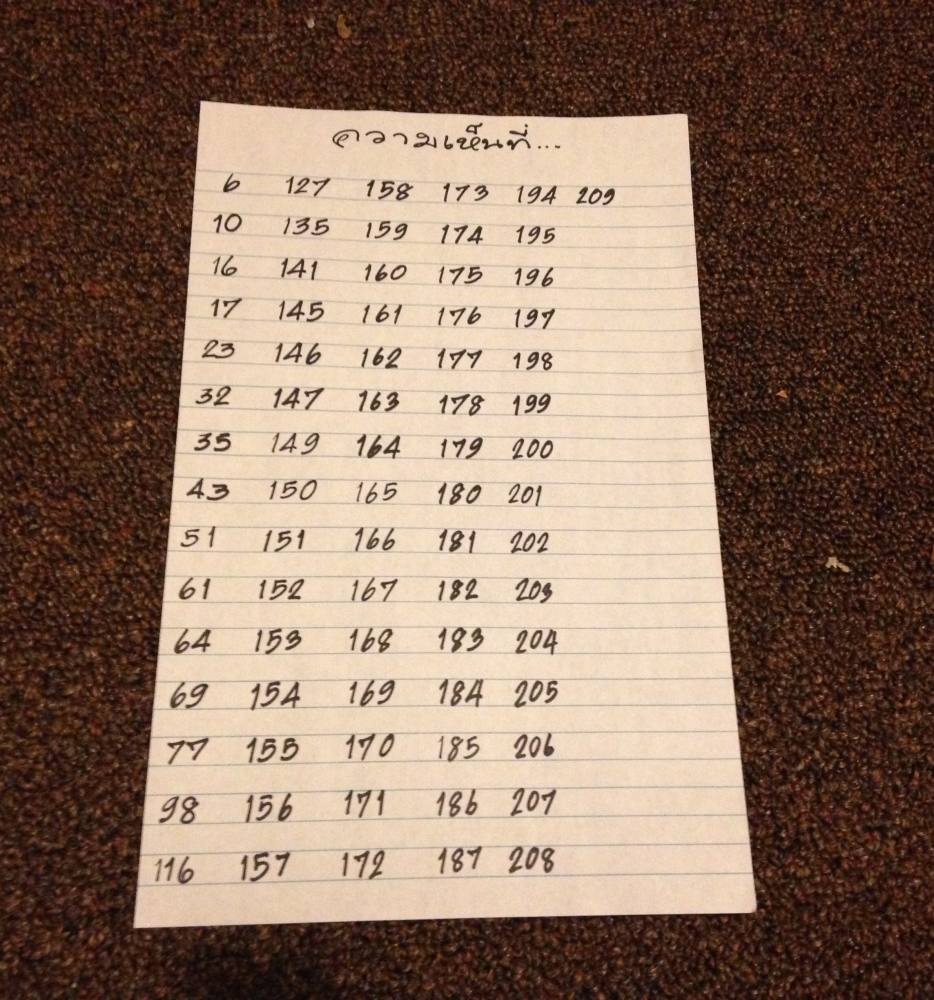 ความเห็นที่...
6 127 158 173 194 209
10 135 159 174 195
16 141 160 175 196
17 145 161 176 197
23 146 162 177 198
32 147 163 178 199
35 149 164 179 200
43 150 165 180 201
51 151 166 181 202
61 152 167 182 203
64 153 168 183 204
69 154 169 184 205
77 155 170 185 206
98 156 171 186 207
116 157 172 187 208